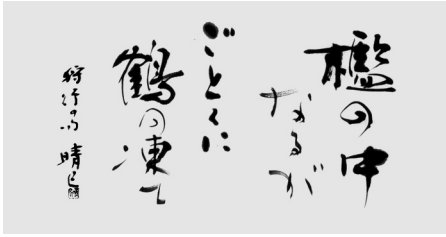 檻の中
なるが
ごとくに
鶴の凍て
狩行の句 晴